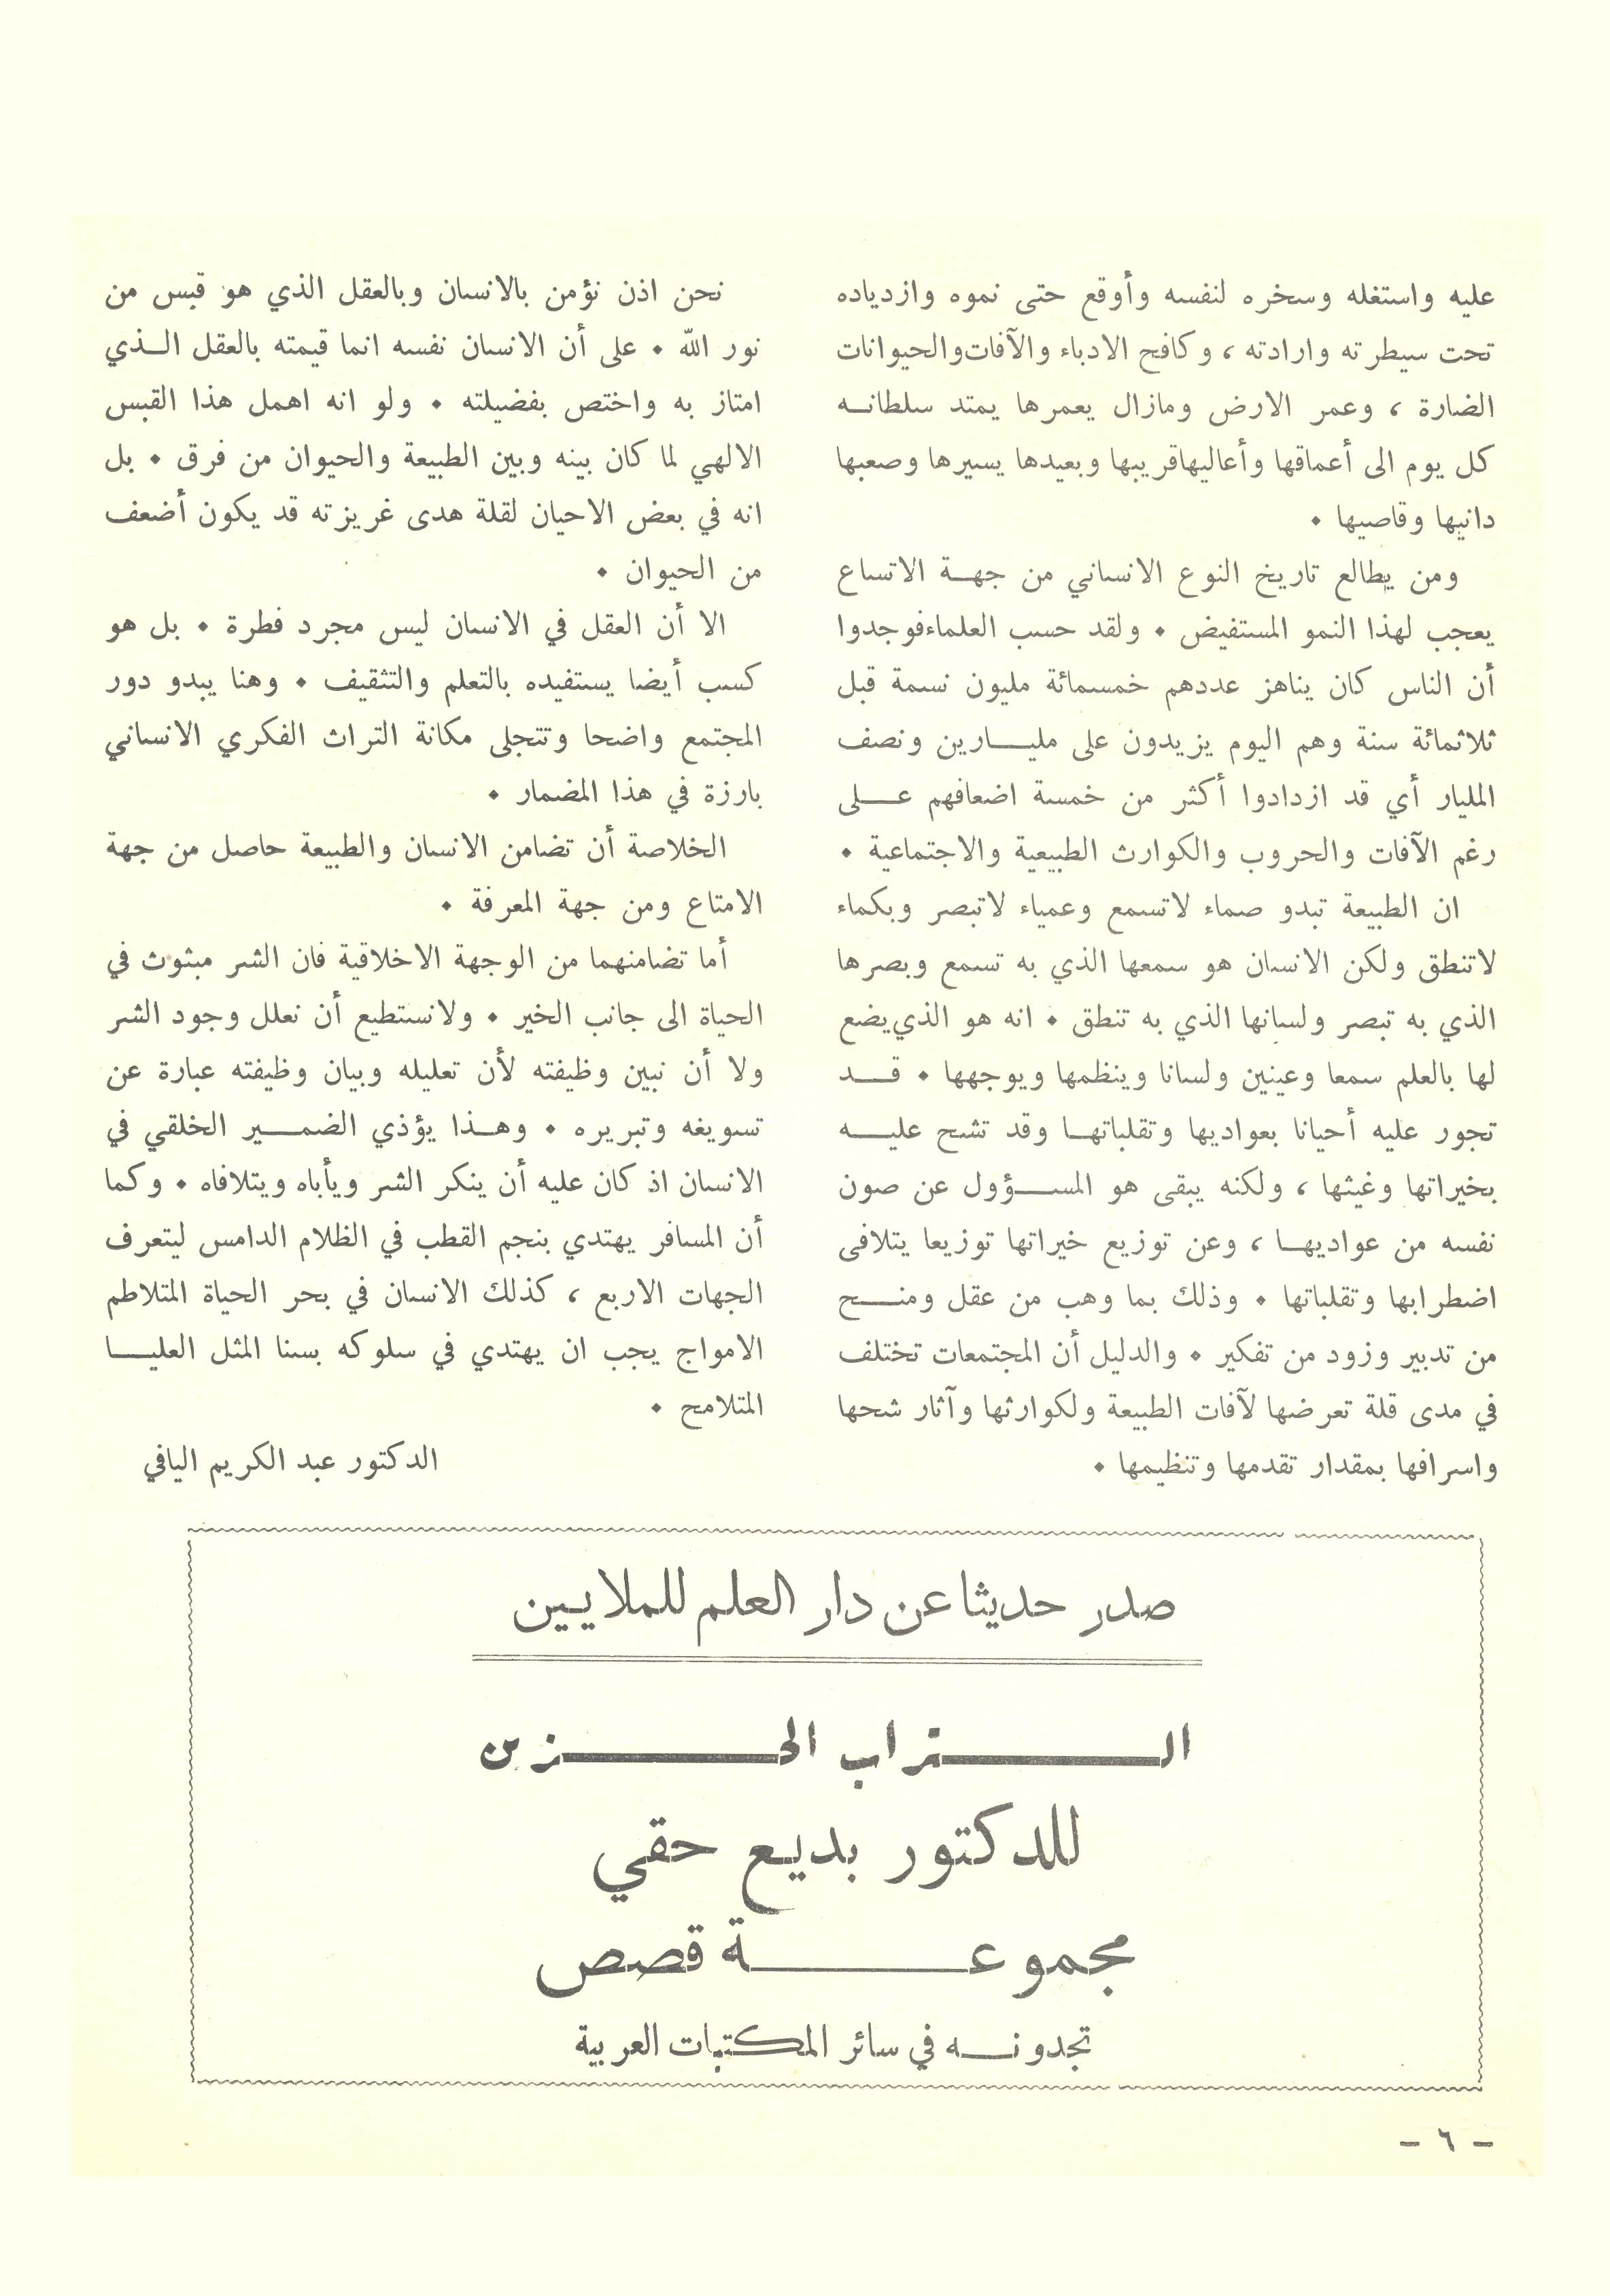 عليه واستغله وسخره لنفسه وأوقع حتى نموه وازدياده
تحت سيطرته وارادته ، وكافح الادباء والآفات والحيوانات
الضارة ، وعمر الارض ومازال يعمرها يمتد سلطانه
كل يوم الى أعماقها وأعاليها قريبها وبعيدها يسيرها وصعبها
دانيها وقاصيها .
ومن يطالع تاريخ النوع الانساني من جهة الاتساع
يعجب لهذا النمو المستفيض . ولقد حسب العلماء فوجدوا
أن الناس كان يناهز عددهم خمسمائة مليون نسمة قبل
ثلاثمائة سنة وهم اليوم يزيدون على مليارين ونصف
المليار أي قد ازدادوا أكثر من خمسة اضعافهم على
رغم الآفات والحروب والكوارث الطبيعية والاجتماعية .
ان الطبيعة تبدو صماء لاتسمع وعمياء لاتبصر وبكماء
لاتنطق ولكن الانسان هو سمعها الذي به تسمع وبصرها
الذي به تبصر ولسانها الذي به تنطق . انه هو الذي يضع
لها بالعلم سمعا وعينين ولسانا وينظمها ويوجهها . قد
تجور عليه أحيانا بعواديها وتقلباتها وقد تشح عليه
بخيراتها وغيثها ، ولكنه يبقى هو المسؤول عن صون
نفسه من عواديها ، وعن توزيع خيراتها توزيعا يتلافى
اضطرابها وتقلباتها . وذلك بما وهب من عقل ومنح
من تدبير وزود من تفكير . والدليل أن المجتمعات تختلف
في مدى قلة تعرضها لآفات الطبيعة ولكوارثها وآثار شحها
واسرافها بمقدار تقدمها وتنظيمها .
نحن اذن نؤمن بالانسان وبالعقل الذي هو قبس من
نور الله . على أن الانسان نفسه انما قيمته بالعقل الذي
امتاز به واختص بفضيلته . ولو انه اهمل هذا القبس
الالهي لما كان بينه وبين الطبيعة والحيوان من فرق . بل
انه في بعض الاحيان لقلة هدى غريزته قد يكون أضعف
من الحيوان .
الا أن العقل في الانسان ليس مجرد فطرة . بل هو
كسب أيضا يستفيده بالتعلم والتثقيف . وهنا يبدو دور
المجتمع واضحا وتتجلى مكانة التراث الفكري الانساني
بارزة في هذا المضمار .
الخلاصة أن تضامن الانسان والطبيعة حاصل من جهة
الامتاع ومن جهة المعرفة .
أما تضامنهما من الوجهة الاخلاقية فان الشر مبثوث في
الحياة الى جانب الخير . ولانستطيع أن نعلل وجود الشر
ولا أن نبين وظيفته لأن تعليله وبيان وظيفته عبارة عن
تسويغه وتبريره . وهذا يؤذي الضمير الخلقي في
الانسان اذ كان عليه أن ينكر الشر ويأباه ويتلافاه . وكما
أن المسافر يهتدي بنجم القطب في الظلام الدامس ليتعرف
الجهات الاربع ، كذلك الانسان في بحر الحياة المتلاطم
الامواج يجب ان يهتدي في سلوكه بسنا المثل العليا
المتلامح .
الدكتور عبد الكريم اليافي
صدر حديثا عن دار العلم للملايين
التراب الحزين
للدكتور بديع حقي
مجموعة قصص
تجدونه في سائر المكتبات العربية
- ٦ -